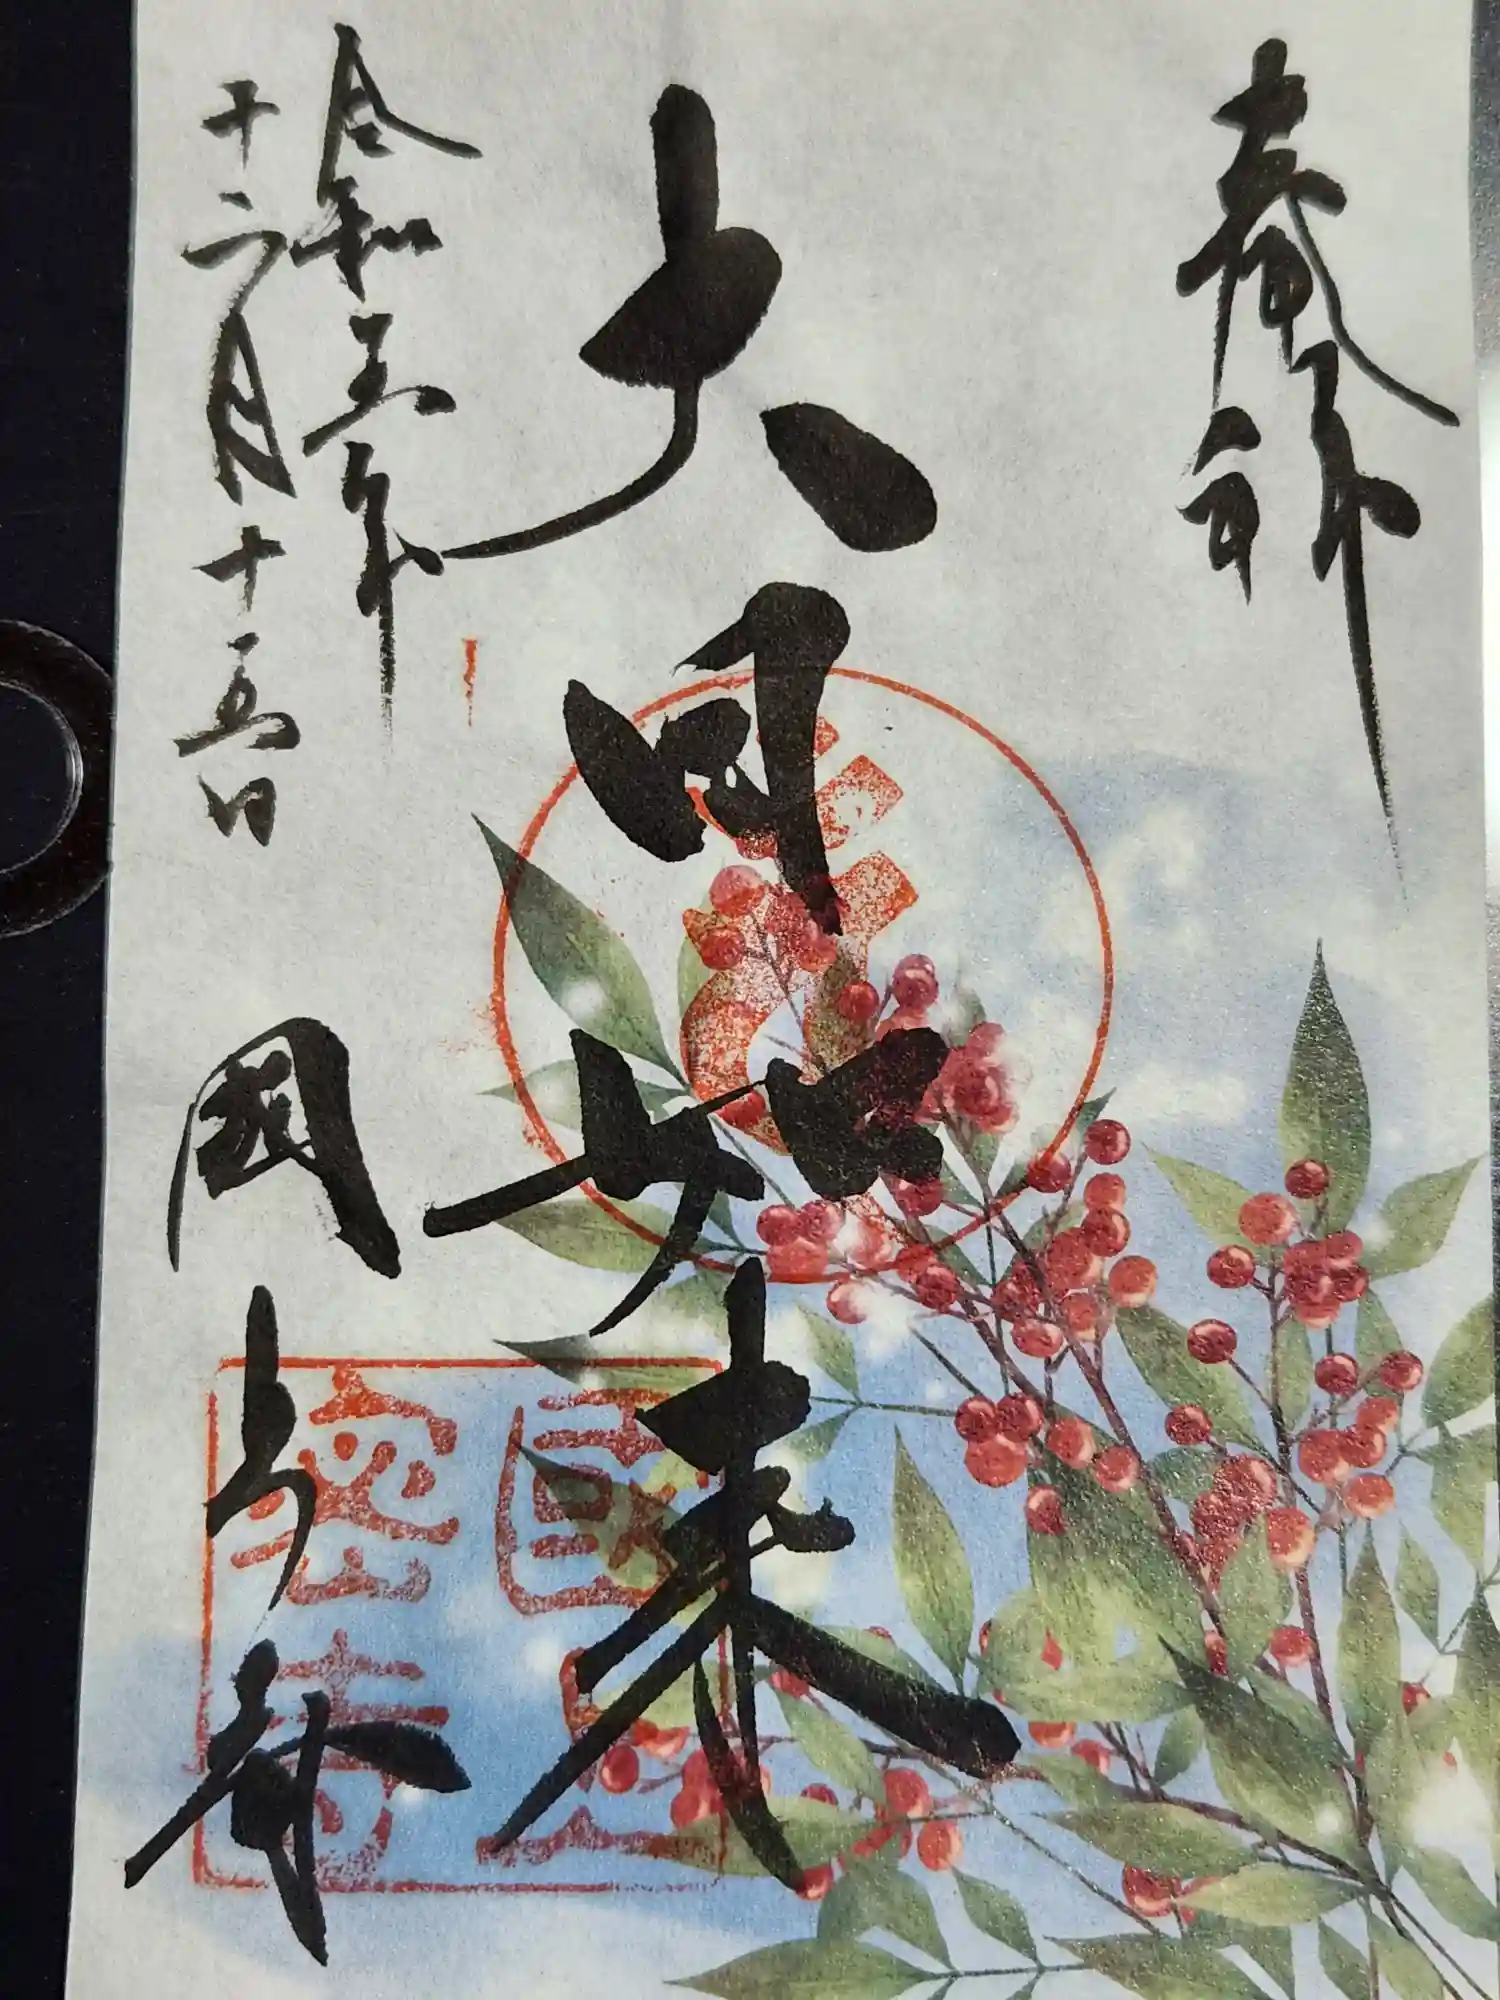 奉拝
大日如来
令和五年
十二月十五日
國上寺
國上
密寺